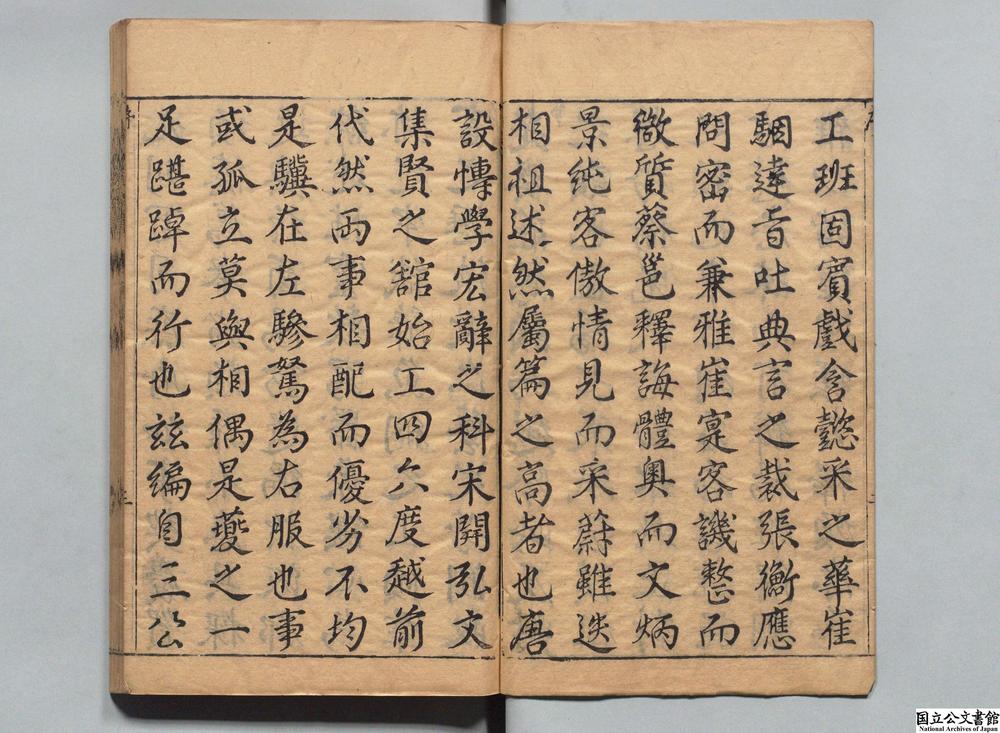 工班固賓戲含懿采之華崔
駰達旨吐典言之裁張衡應
問密而兼雅崔寔客譏整而
微質蔡邕釋誨體奧而文炳
景純客傲情見而采蔚雖迭
相祖述然屬篇之高者也唐
設愽學宏辭之科宋開弘文
集賢之舘始工四六度越前
代然兩事相配而優劣不均
是驥在左驂駑為右服也事
或孤立莫與相偶是夔之一
足踸踔而行也玆編自三公
国立公文書館
National Archives of Japan